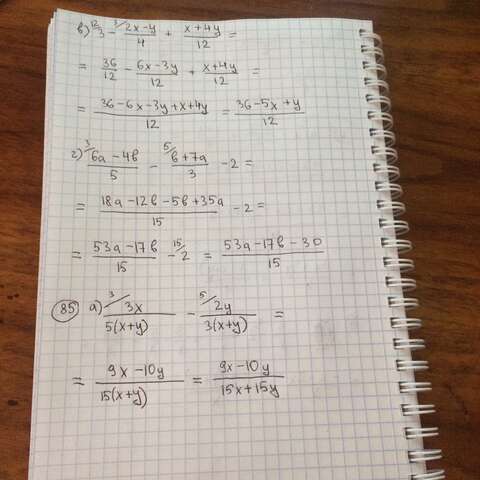 в) ¹²/3 - ³/(2x-y)/4 + (x+4y)/12 =
= 36/12 - (6x-3y)/12 + (x+4y)/12 =
= (36-6x-3y+x+4y)/12 = (36-5x+y)/12
г) ³/(6a-4в)/5 - ⁵/(в+7a)/3 - 2 =
= (18a-12в-5в+35a)/15 - 2 =
= (53a-17в)/15 - ¹⁵/2 = (53a-17в-30)/15
85 а) ³/3x/(5(x+y)) - ⁵/2y/(3(x+y)) =
= (9x-10y)/(15(x+y)) = (9x-10y)/(15x+15y)